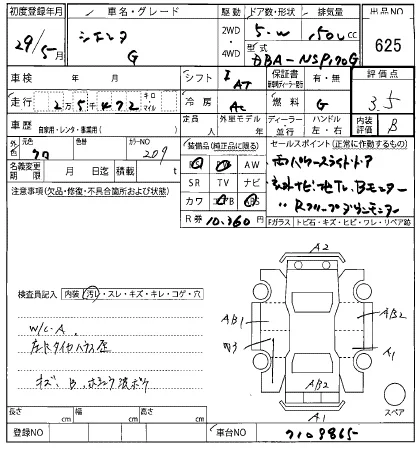 初度登録年月 車名・グレード 駆動 ドア数・形状 排気量 出品NO
29/5月 シエンタ G 2WD 4WD 5.W 1500cc 625
型式 DBA-NSP170G
車検 年 月 シフト AT 保証書 有・無 評価点
走行 2万5千472 キロ・マイル 冷房 AC 燃料 G 3.5
車歴 自家用・レンタ・事業用( ) 定員 人 外車モデル 年 ディーラー 並行 ハンドル 左・右 内装 B
外色 元色 クロ 色替 カラーNO 209
名義変更期限 月 日迄 積載 t
装備品(純正品に限る)
PS PW AW
SR TV ナビ
カワ エアB ABS
R券 10,360円
セールスポイント(正常に作動するもの)
両パワースライドドア
Fガラス トビ石・キズ・ヒビ・ワレ・リペア跡
注意事項(欠品・修復・不具合箇所および状態)
検査員記入 内装(汚レ・スレ・キズ・キレ・コゲ・穴)
W/C.A
キズ、B、
A2
AB1
W3
AB2
A1
AB2
A1
スペア
長さ cm 幅 cm 高さ cm
登録NO 車台NO 7109865